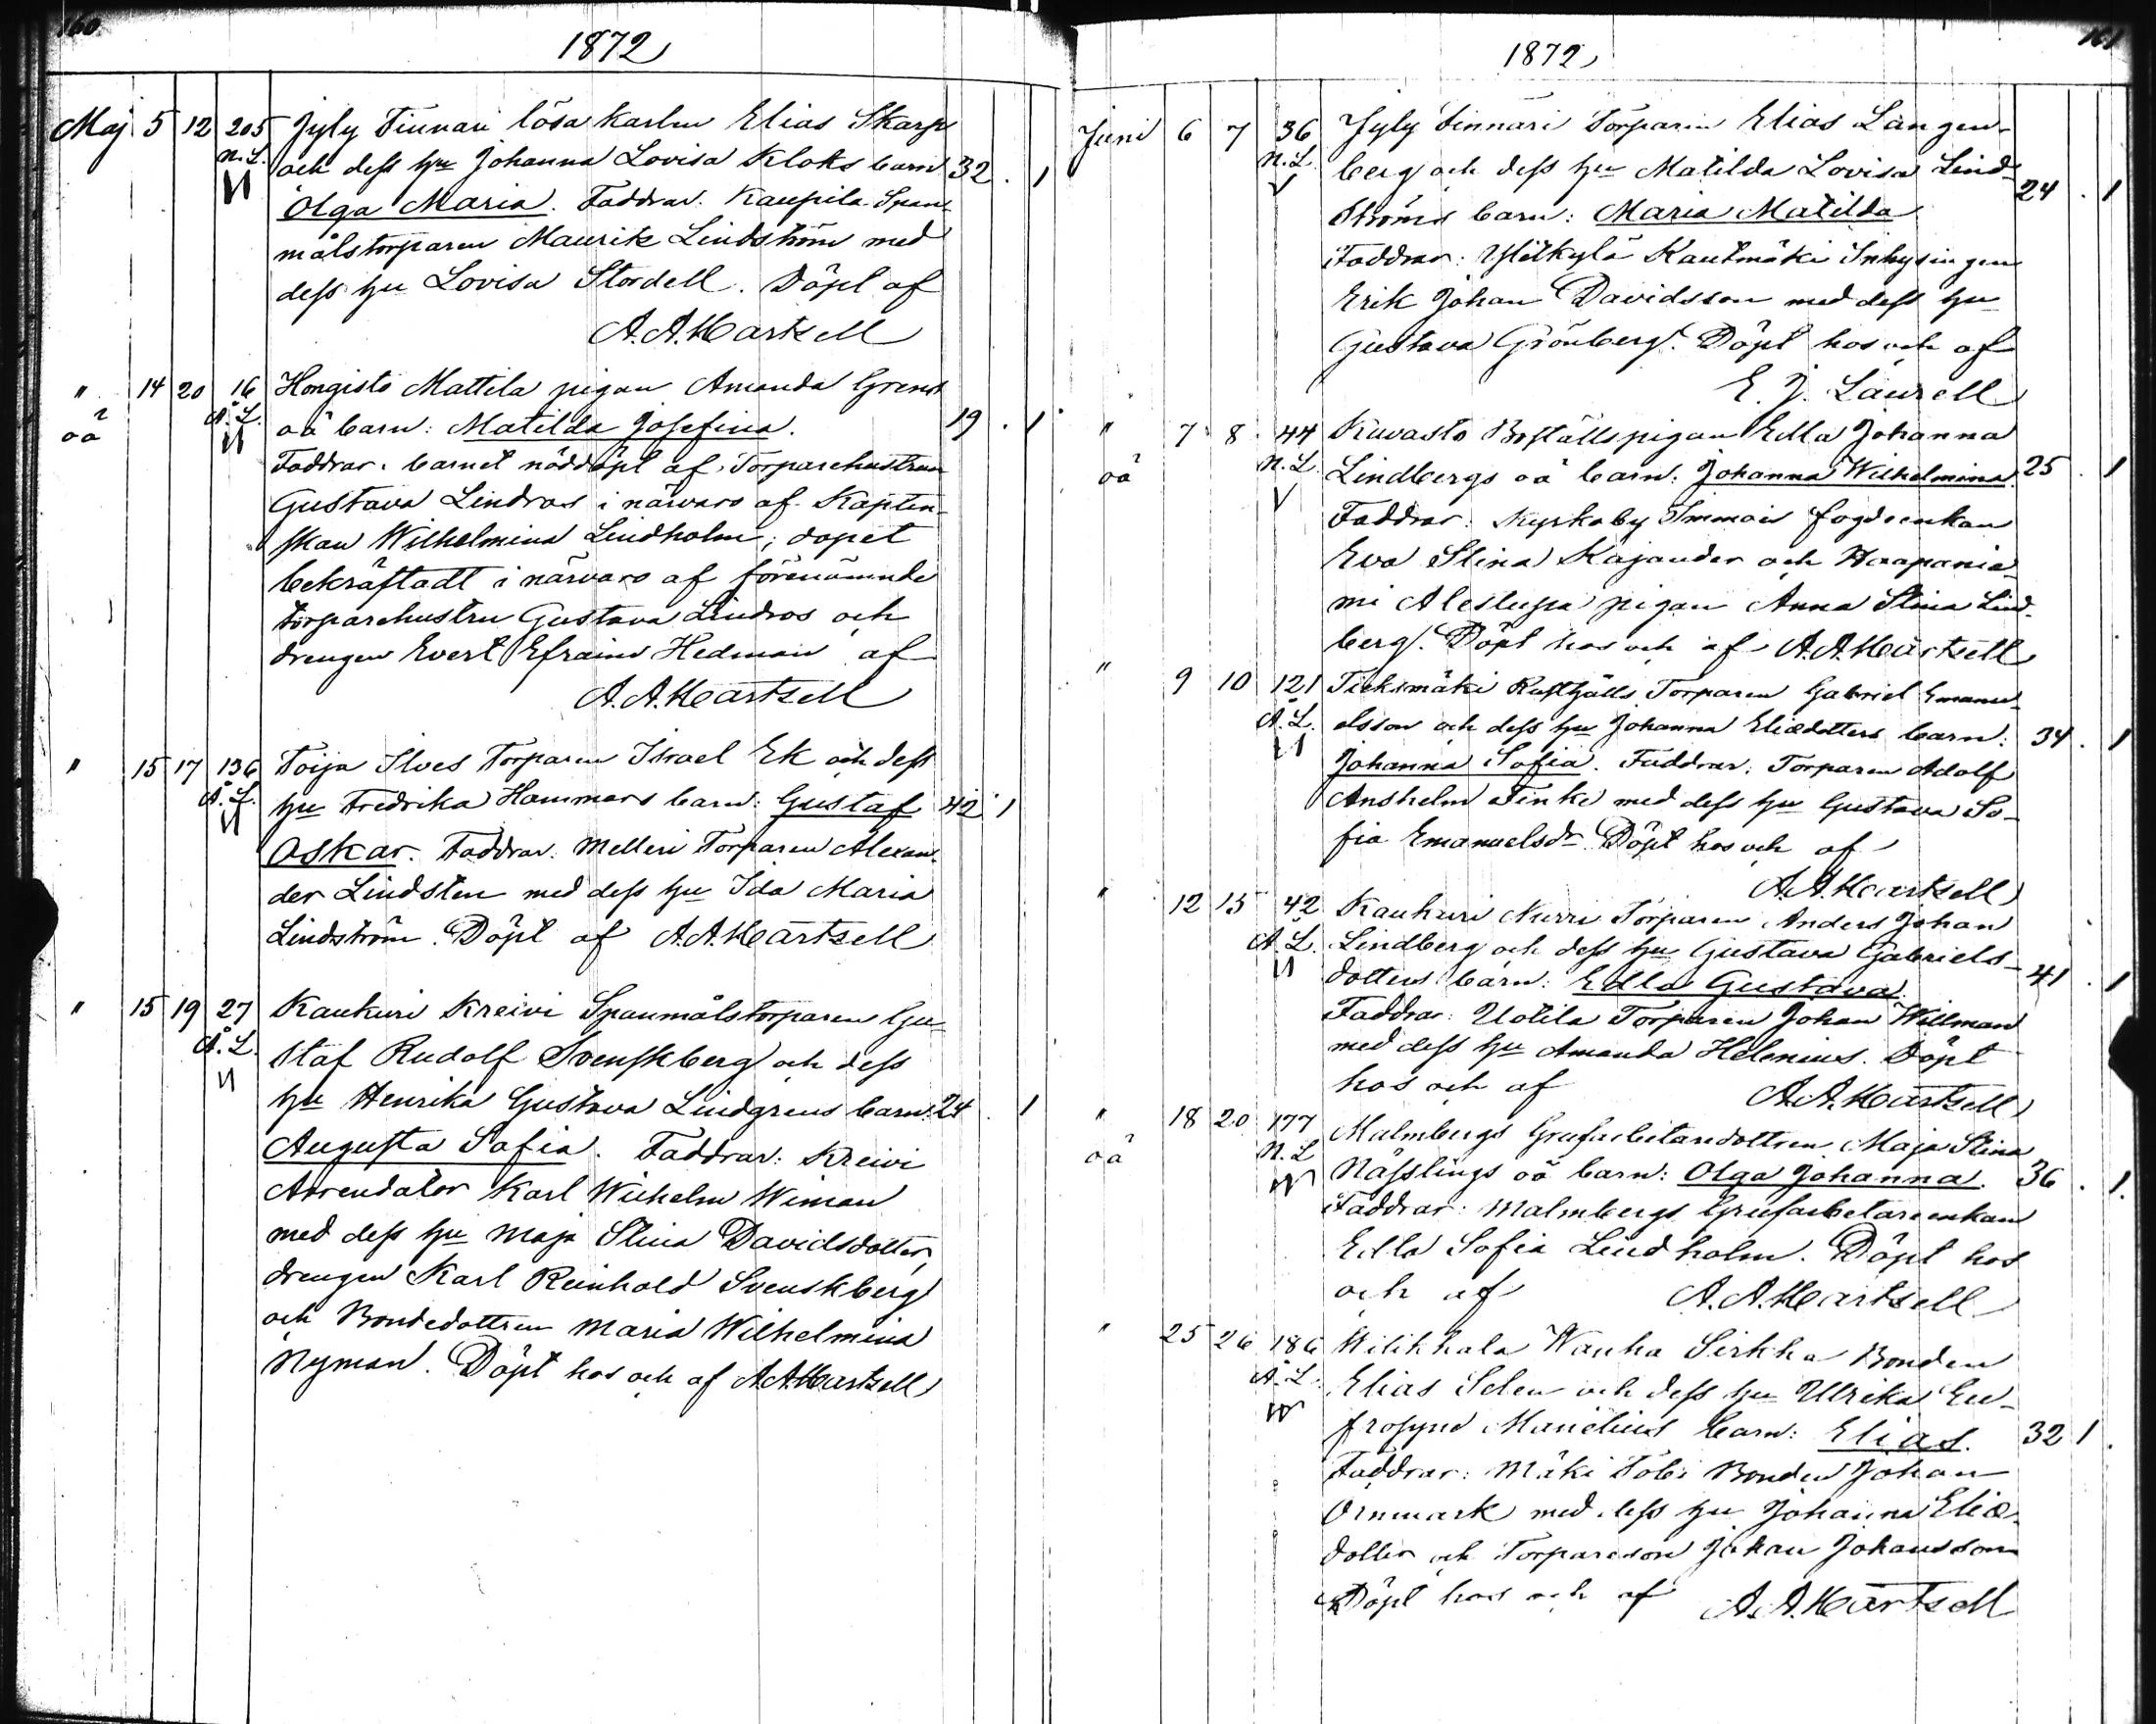 160.
1872
Maj 5 12 205 Jyly Finnari lösa karlen Elias Skarp
N. L. och dess hu Johanna Lovisa Kloks barn 32 . 1
Olga Maria. Faddrar. Kaupila Span-
målstorparen Maurik Lindström med
dess hu Lovisa Stordell. Döpt af
A. A. Hartzell
" 14 20 16 Hongisto Mattila pigan Amanda
oä Å. L. oä barn: Matilda Josefina. 19 . 1
Faddrar. barnet nöddöpt af Torparehustrun
Gustava Lindros i närvaro af Kapten-
skan Wilhelmina Lindholm; dopet
bekräftadt i närvaro af förenämnde
torparehustru Gustava Lindros och
drengen Evert Efraim Hedman af
A. A. Hartzell
" 15 17 136 Toija Ilves Torparen Israel Ek och dess
Å. L. hu Fredrika Hammars barn: Gustaf 42 1
Oskar. Faddrar: Melleri Torparen Alexan-
der Lindsten med dess hu Ida Maria
Lindström. Döpt af A. A. Hartzell
" 15 19 27 Kaukuri Kreivi Spanmålstorparen Gu-
Å. L. staf Rudolf Svenskberg och dess
hu Henrika Gustava Lindgrens barn: 24 . 1
Augusta Sofia. Faddrar: Kreivi
Arrendator Karl Wilhelm Wiman
med dess hu Maja Stina Davidsdotter,
drengen Karl Reinhold Svenskberg
och Bondedottren Maria Wilhelmina
Nyman. Döpt hos och af A. A. Hartzell
161
1872
Juni 6 7 36 Jyly Finnari Torparen Elias Längen-
N. L. berg och dess hu Matilda Lovisa Lind-
ströms barn: Maria Matilda 24 . 1
Faddrar: Ylikylä Kautmäki Inhysingen
Erik Johan Davidsson med dess hu
Gustava Grönberg. Döpt hos och af
E. J. Laurell
" 7 8 44 Kavasto Boställs pigan Edla Johanna
oä N. L. Lindbergs oä barn: Johanna Wilhelmina. 25 . 1
Faddrar: Kyrkoby fogdeenkan
Eva Stina Kajander och Haapanie-
mi pigan Anna Stina Lind-
berg. Döpt hos och af A. A. Hartzell
" 9 10 121 Rusthålls Torparen Gabriel Emanu-
Å. L. elsson och dess hu Johanna Eliædotters barn: 34 . 1
Johanna Sofia. Faddrar: Torparen Adolf
Anshelm Finke med dess hu Gustava So-
fia Emanuelsdr. Döpt hos och af
A. A. Hartzell
" 12 15 42 Kaukuri Nurri Torparen Anders Johan
Å. L. Lindberg och dess hu Gustava Gabriels-
dotters barn: Edla Gustava. 41 . 1
Faddrar: Uotila Torparen Johan Willman
med dess hu Amanda Helenius. Döpt
hos och af A. A. Hartzell
" 18 20 177 Malmbergs Grufarbetaredottren Maja Stina
oä N. L. Nässlings oä barn: Olga Johanna. 36 . 1.
Faddrar: Malmbergs Grufarbetareenkan
Edla Sofia Lindholm. Döpt hos
och af A. A. Hartzell
" 25 26 186 Wilikkala Wanha Sirkka Bonden
Å. L. Elias Selen och dess hu Ulrika Eu-
frosyne Manelius barn: Elias. 32 1 .
Faddrar: Mäki Tobi Bonden Johan
Ornmark med dess hu Johanna Eliæ-
dotter och Torpareson Johan Johansson
Döpt hos och af A. A. Hartzell